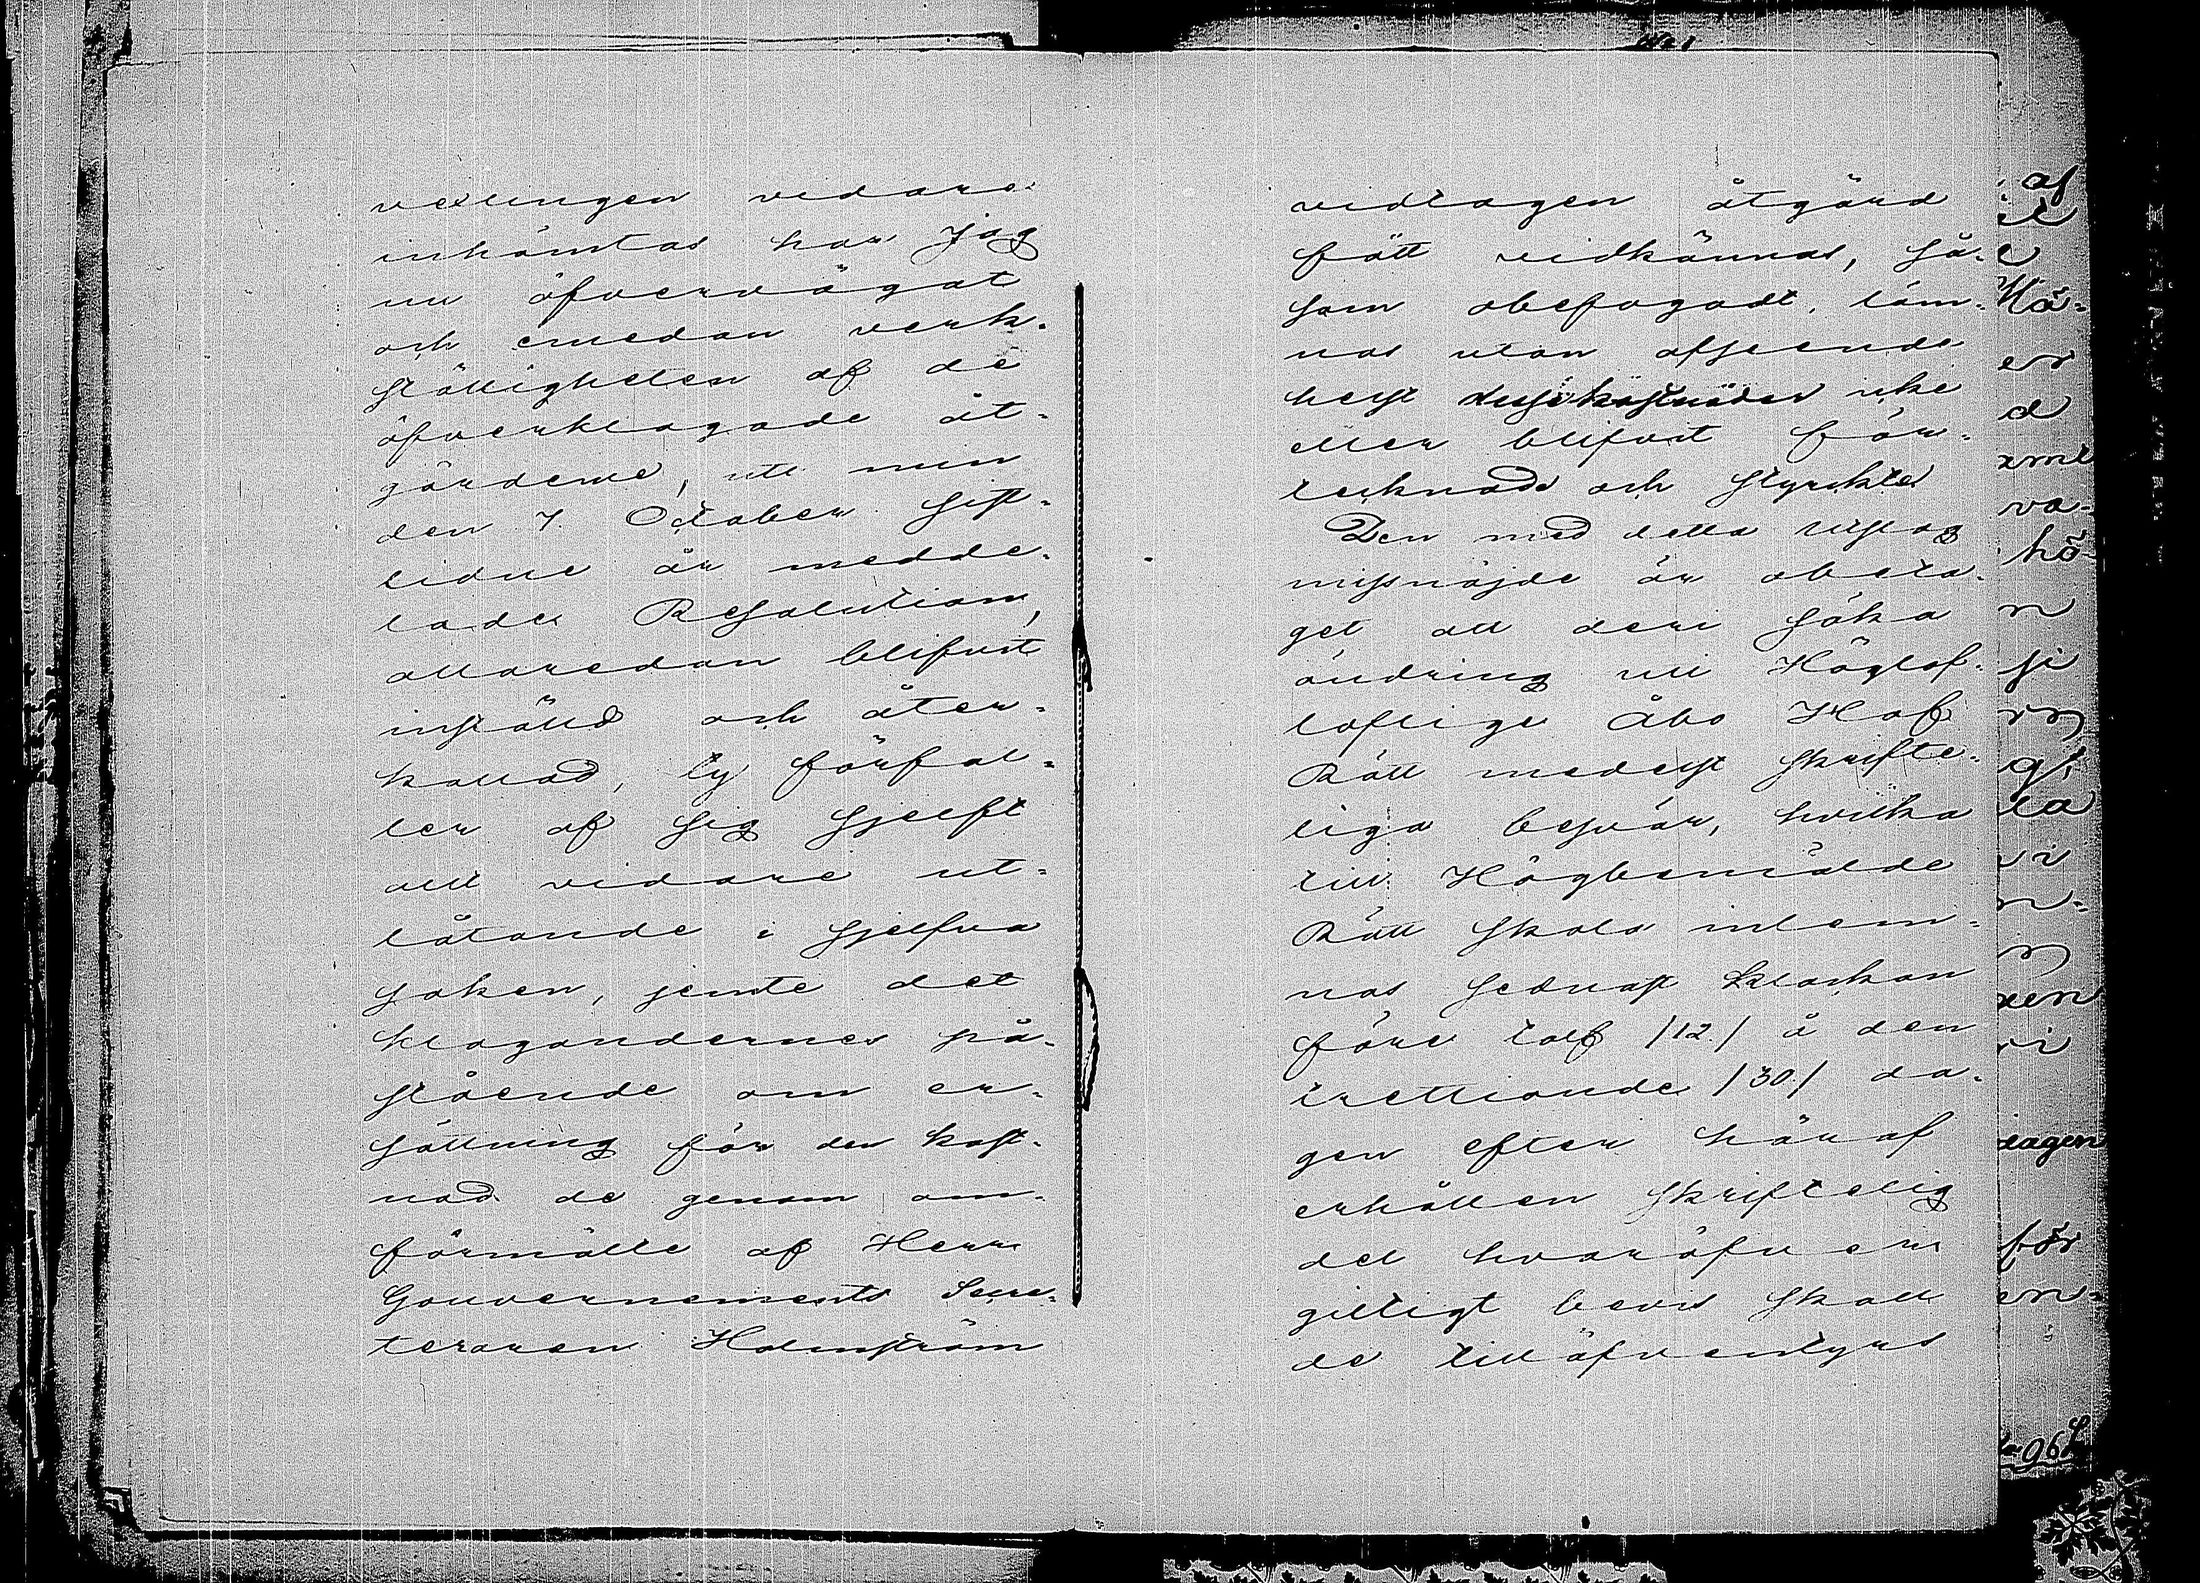 vexlingen vidare
inhämtas har jag
nu öfvervägat
och emedan verk-
ställigheten af de
öfverklagade åt-
gärderne, uti min
den 7 October sist-
lidne år medde-
lade Resolution,
allaredan blifvit
inställd och åter-
kallad, ty förfal-
ler af sig sjelft
allt vidare ut-
låtande i sjelfva
saken, jemte det
klagandernes på-
stående om er-
sättning för den kost-
nad de genom om-
förmälte af Herr
Gouvernements Secre-
teraren Holmström
vidtagen åtgärd
fått vidkännas, så-
som obefogadt, läm-
nas utan afseende
helst dessa kostnader icke
eller blifvit för-
tecknade och styrkte
Den med detta utslag
missnöjde är obeta-
get att deri söka
ändring uti Höglof-
loflige Åbo Hof
Rätt medelst skrifte-
liga besvär, hvilka
till Högbemälde
Rätt skola inlem-
nas sednast klockan
före tolf /12./ å den
trettionde /30./ da-
gen efter häraf
erhållen skriftelig
del hvaröfver
giltigt bevis skall
de till äfventyrs
af
Mä-
er
d
va-
hö-
n
si
la
vi
n-
dagen
för
en-
96